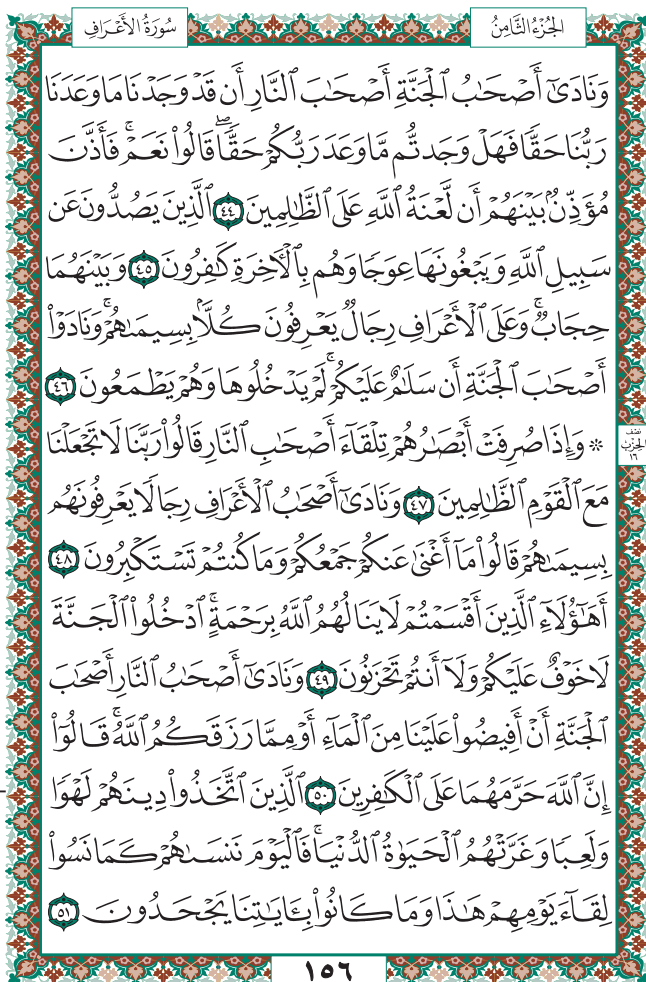 الجُزْءُ الثَّامِنُ
سُورَةُ الأَعْرَافِ
وَنَادَىٰٓ أَصۡحَٰبُ ٱلۡجَنَّةِ أَصۡحَٰبَ ٱلنَّارِ أَن قَدۡ وَجَدۡنَا مَا وَعَدَنَا
رَبُّنَا حَقّٗا فَهَلۡ وَجَدتُّم مَّا وَعَدَ رَبُّكُمۡ حَقّٗاۖ قَالُواْ نَعَمۡۚ فَأَذَّنَ
مُؤَذِّنُۢ بَيۡنَهُمۡ أَن لَّعۡنَةُ ٱللَّهِ عَلَى ٱلظَّٰلِمِينَ ٤٤ ٱلَّذِينَ يَصُدُّونَ عَن
سَبِيلِ ٱللَّهِ وَيَبۡغُونَهَا عِوَجٗا وَهُم بِٱلۡأٓخِرَةِ كَٰفِرُونَ ٤٥ وَبَيۡنَهُمَا
حِجَابٞۚ وَعَلَى ٱلۡأَعۡرَافِ رِجَالٞ يَعۡرِفُونَ كُلَّۢا بِسِيمَىٰهُمۡۚ وَنَادَوۡاْ
أَصۡحَٰبَ ٱلۡجَنَّةِ أَن سَلَٰمٌ عَلَيۡكُمۡۚ لَمۡ يَدۡخُلُوهَا وَهُمۡ يَطۡمَعُونَ ٤٦
۞ وَإِذَا صُرِفَتۡ أَبۡصَٰرُهُمۡ تِلۡقَآءَ أَصۡحَٰبِ ٱلنَّارِ قَالُواْ رَبَّنَا لَا تَجۡعَلۡنَا
نصف
الحزب
١٦
مَعَ ٱلۡقَوۡمِ ٱلظَّٰلِمِينَ ٤٧ وَنَادَىٰٓ أَصۡحَٰبُ ٱلۡأَعۡرَافِ رِجَالٗا يَعۡرِفُونَهُم
بِسِيمَىٰهُمۡ قَالُواْ مَآ أَغۡنَىٰ عَنكُمۡ جَمۡعُكُمۡ وَمَا كُنتُمۡ تَسۡتَكۡبِرُونَ ٤٨
أَهَٰٓؤُلَآءِ ٱلَّذِينَ أَقۡسَمۡتُمۡ لَا يَنَالُهُمُ ٱللَّهُ بِرَحۡمَةٍۚ ٱدۡخُلُواْ ٱلۡجَنَّةَ
لَا خَوۡفٌ عَلَيۡكُمۡ وَلَآ أَنتُمۡ تَحۡزَنُونَ ٤٩ وَنَادَىٰٓ أَصۡحَٰبُ ٱلنَّارِ أَصۡحَٰبَ
ٱلۡجَنَّةِ أَنۡ أَفِيضُواْ عَلَيۡنَا مِنَ ٱلۡمَآءِ أَوۡ مِمَّا رَزَقَكُمُ ٱللَّهُۚ قَالُوٓاْ
إِنَّ ٱللَّهَ حَرَّمَهُمَا عَلَى ٱلۡكَٰفِرِينَ ٥٠ ٱلَّذِينَ ٱتَّخَذُواْ دِينَهُمۡ لَهۡوٗا
وَلَعِبٗا وَغَرَّتۡهُمُ ٱلۡحَيَوٰةُ ٱلدُّنۡيَاۚ فَٱلۡيَوۡمَ نَنسَىٰهُمۡ كَمَا نَسُواْ
لِقَآءَ يَوۡمِهِمۡ هَٰذَا وَمَا كَانُواْ بِـَٔايَٰتِنَا يَجۡحَدُونَ ٥١
١٥٦